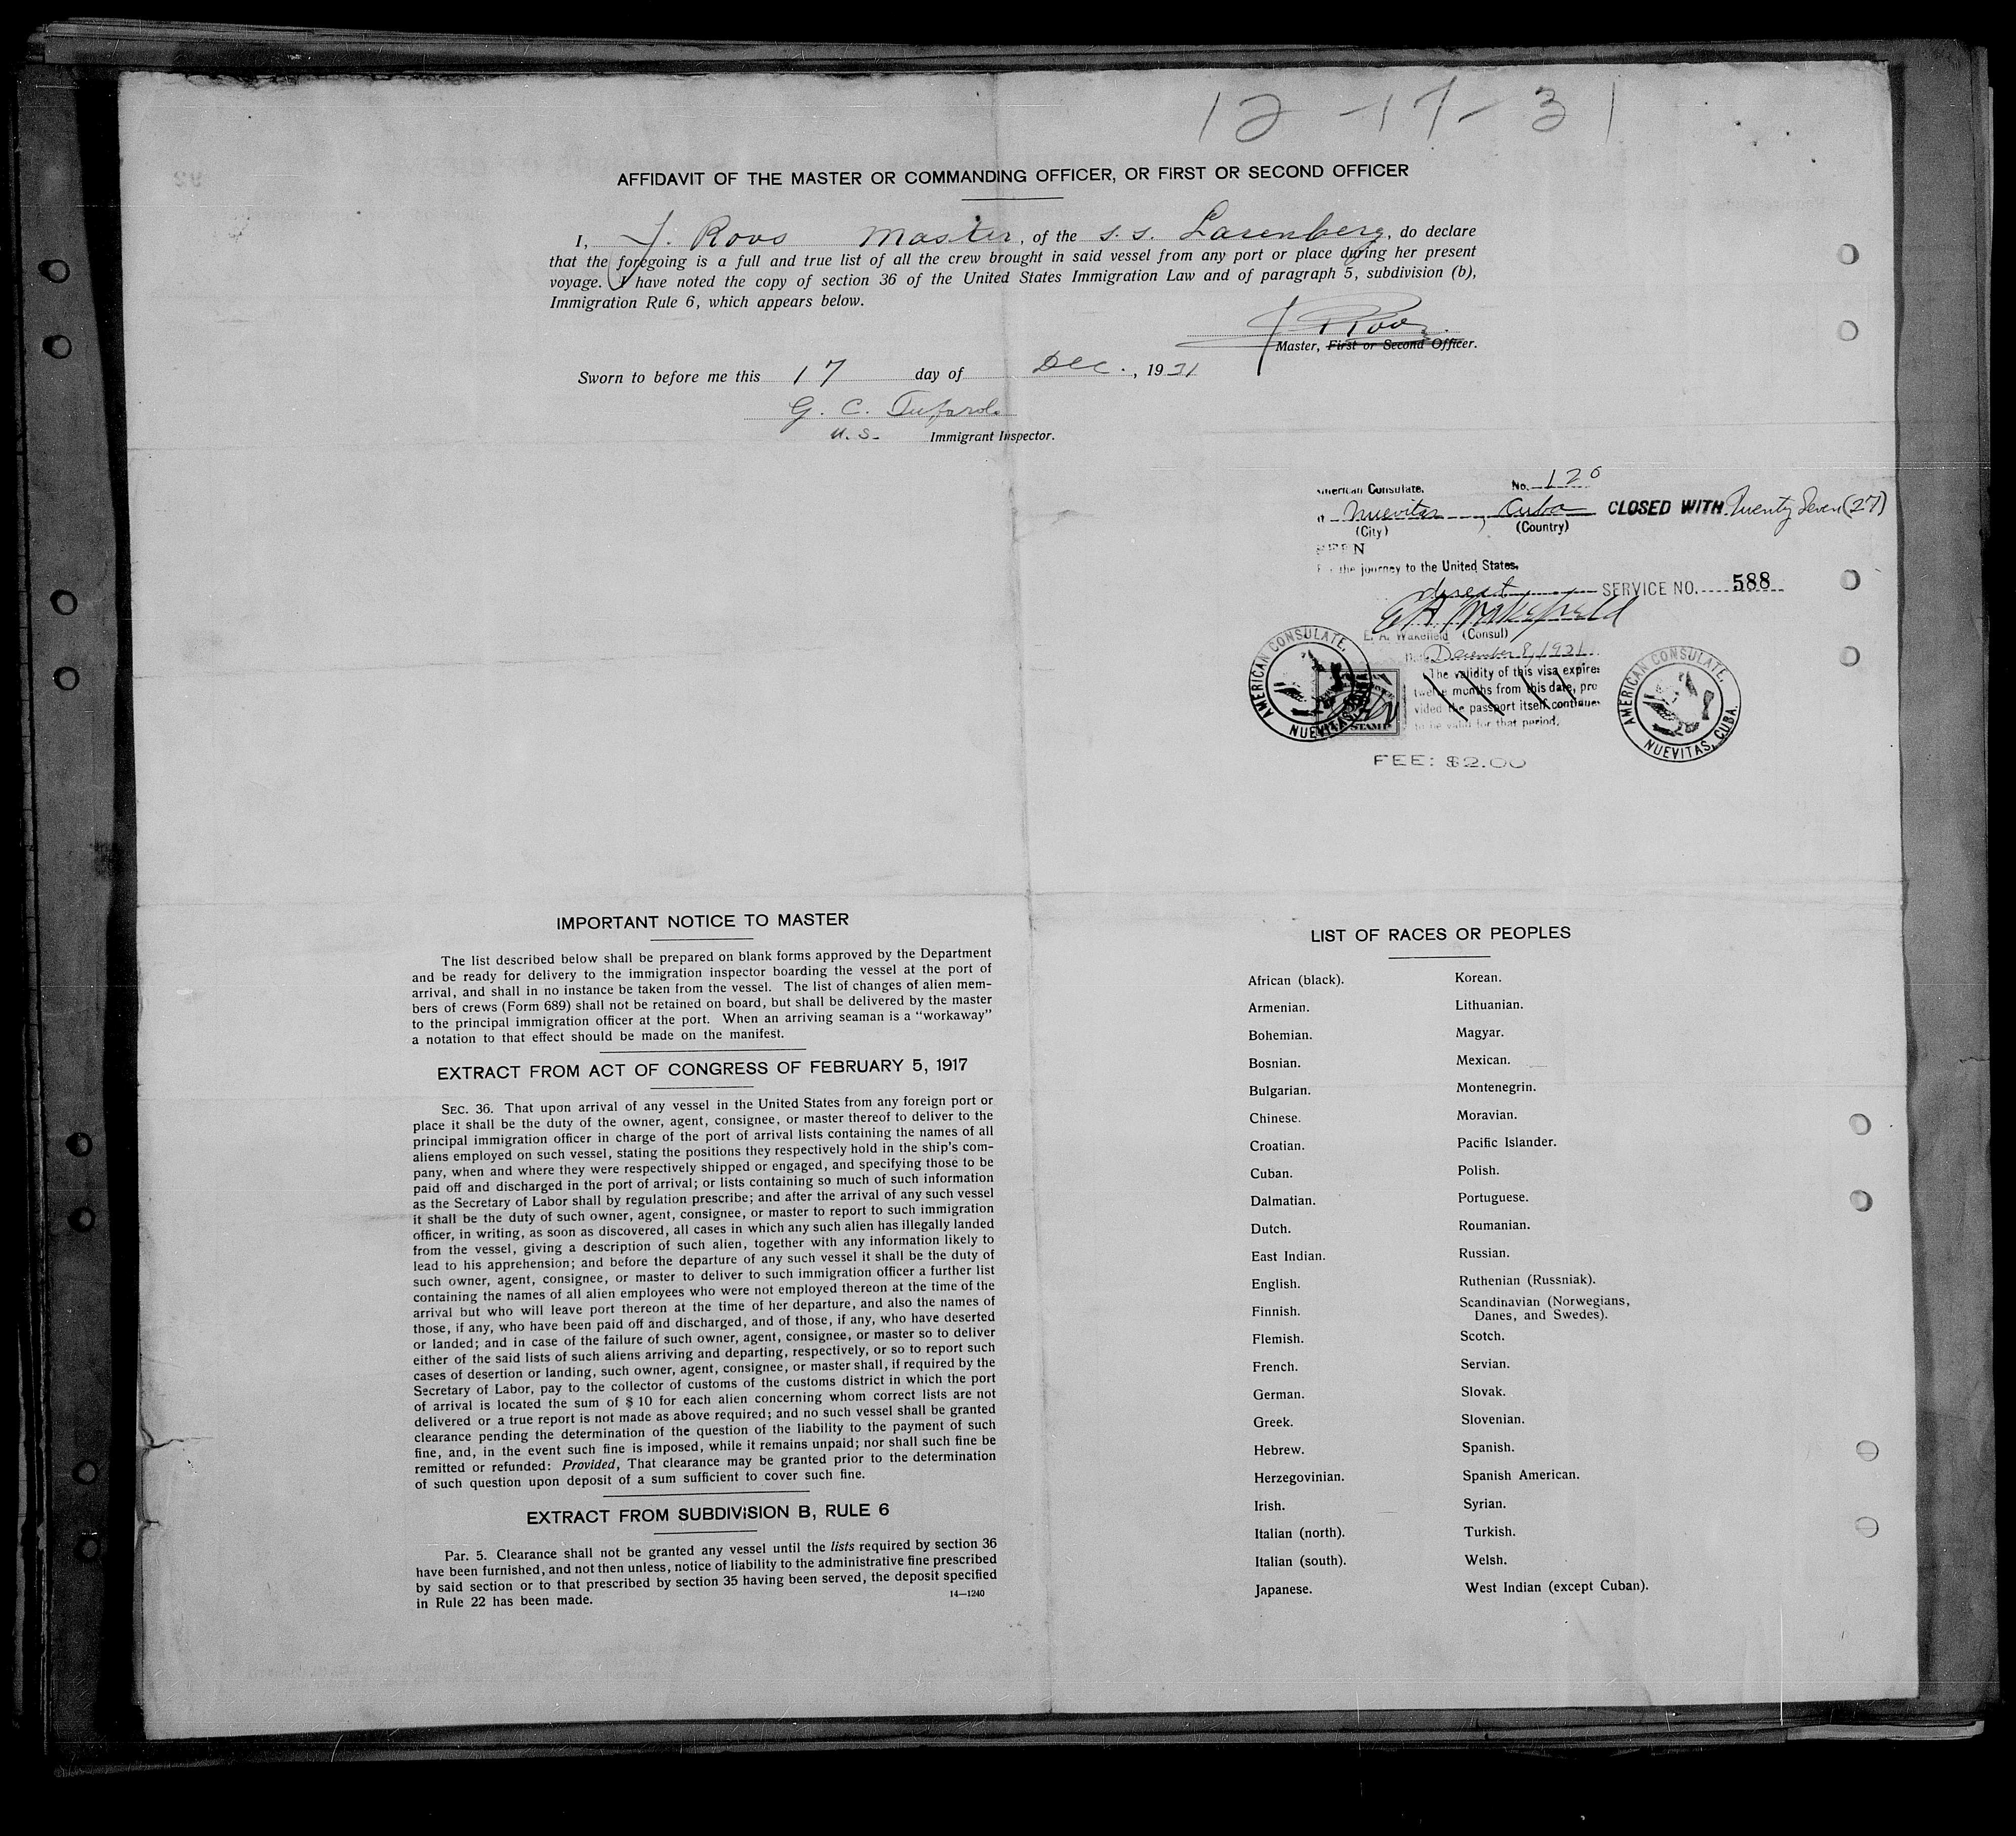 12-17-31
AFFIDAVIT OF THE MASTER OR COMMANDING OFFICER, OR FIRST OR SECOND OFFICER
I, J. Roos Master, of the s.s. Larenberg, do declare
that the foregoing is a full and true list of all the crew brought in said vessel from any port or place during her present
voyage. I have noted the copy of section 36 of the United States Immigration Law and of paragraph 5, subdivision (b),
Immigration Rule 6, which appears below.
J Roos
Master, First or Second Officer.
Sworn to before me this 17 day of Dec., 1931
G. C.
U.S. Immigrant Inspector.
American Consulate. No. 120
Nuevitas, Cuba CLOSED WITH Twenty Seven (27)
(City) (Country)
SEEN
For the journey to the United States,
direct SERVICE NO. 588
E A Wakefield
E. A. Wakefield (Consul)
December 8, 1931
The validity of this visa expires
twelve months from this date, pro
vided the passport itself continues
to be valid for that period.
AMERICAN CONSULATE, NUEVITAS, CUBA.
STAMP
AMERICAN CONSULATE, NUEVITAS, CUBA.
FEE: $2.00
IMPORTANT NOTICE TO MASTER
The list described below shall be prepared on blank forms approved by the Department
and be ready for delivery to the immigration inspector boarding the vessel at the port of
arrival, and shall in no instance be taken from the vessel. The list of changes of alien mem-
bers of crews (Form 689) shall not be retained on board, but shall be delivered by the master
to the principal immigration officer at the port. When an arriving seaman is a "workaway"
a notation to that effect should be made on the manifest.
EXTRACT FROM ACT OF CONGRESS OF FEBRUARY 5, 1917
SEC. 36. That upon arrival of any vessel in the United States from any foreign port or
place it shall be the duty of the owner, agent, consignee, or master thereof to deliver to the
principal immigration officer in charge of the port of arrival lists containing the names of all
aliens employed on such vessel, stating the positions they respectively hold in the ship's com-
pany, when and where they were respectively shipped or engaged, and specifying those to be
paid off and discharged in the port of arrival; or lists containing so much of such information
as the Secretary of Labor shall by regulation prescribe; and after the arrival of any such vessel
it shall be the duty of such owner, agent, consignee, or master to report to such immigration
officer, in writing, as soon as discovered, all cases in which any such alien has illegally landed
from the vessel, giving a description of such alien, together with any information likely to
lead to his apprehension; and before the departure of any such vessel it shall be the duty of
such owner, agent, consignee, or master to deliver to such immigration officer a further list
containing the names of all alien employees who were not employed thereon at the time of the
arrival but who will leave port thereon at the time of her departure, and also the names of
those, if any, who have been paid off and discharged, and of those, if any, who have deserted
or landed; and in case of the failure of such owner, agent, consignee, or master so to deliver
either of the said lists of such aliens arriving and departing, respectively, or so to report such
cases of desertion or landing, such owner, agent, consignee, or master shall, if required by the
Secretary of Labor, pay to the collector of customs of the customs district in which the port
of arrival is located the sum of $10 for each alien concerning whom correct lists are not
delivered or a true report is not made as above required; and no such vessel shall be granted
clearance pending the determination of the question of the liability to the payment of such
fine, and, in the event such fine is imposed, while it remains unpaid; nor shall such fine be
remitted or refunded: Provided, That clearance may be granted prior to the determination
of such question upon deposit of a sum sufficient to cover such fine.
EXTRACT FROM SUBDIVISION B, RULE 6
Par. 5. Clearance shall not be granted any vessel until the lists required by section 36
have been furnished, and not then unless, notice of liability to the administrative fine prescribed
by said section or to that prescribed by section 35 having been served, the deposit specified
in Rule 22 has been made.
14—1240
LIST OF RACES OR PEOPLES
African (black).
Armenian.
Bohemian.
Bosnian.
Bulgarian.
Chinese.
Croatian.
Cuban.
Dalmatian.
Dutch.
East Indian.
English.
Finnish.
Flemish.
French.
German.
Greek.
Hebrew.
Herzegovinian.
Irish.
Italian (north).
Italian (south).
Japanese.
Korean.
Lithuanian.
Magyar.
Mexican.
Montenegrin.
Moravian.
Pacific Islander.
Polish.
Portuguese.
Roumanian.
Russian.
Ruthenian (Russniak).
Scandinavian (Norwegians,
Danes, and Swedes).
Scotch.
Servian.
Slovak.
Slovenian.
Spanish.
Spanish American.
Syrian.
Turkish.
Welsh.
West Indian (except Cuban).